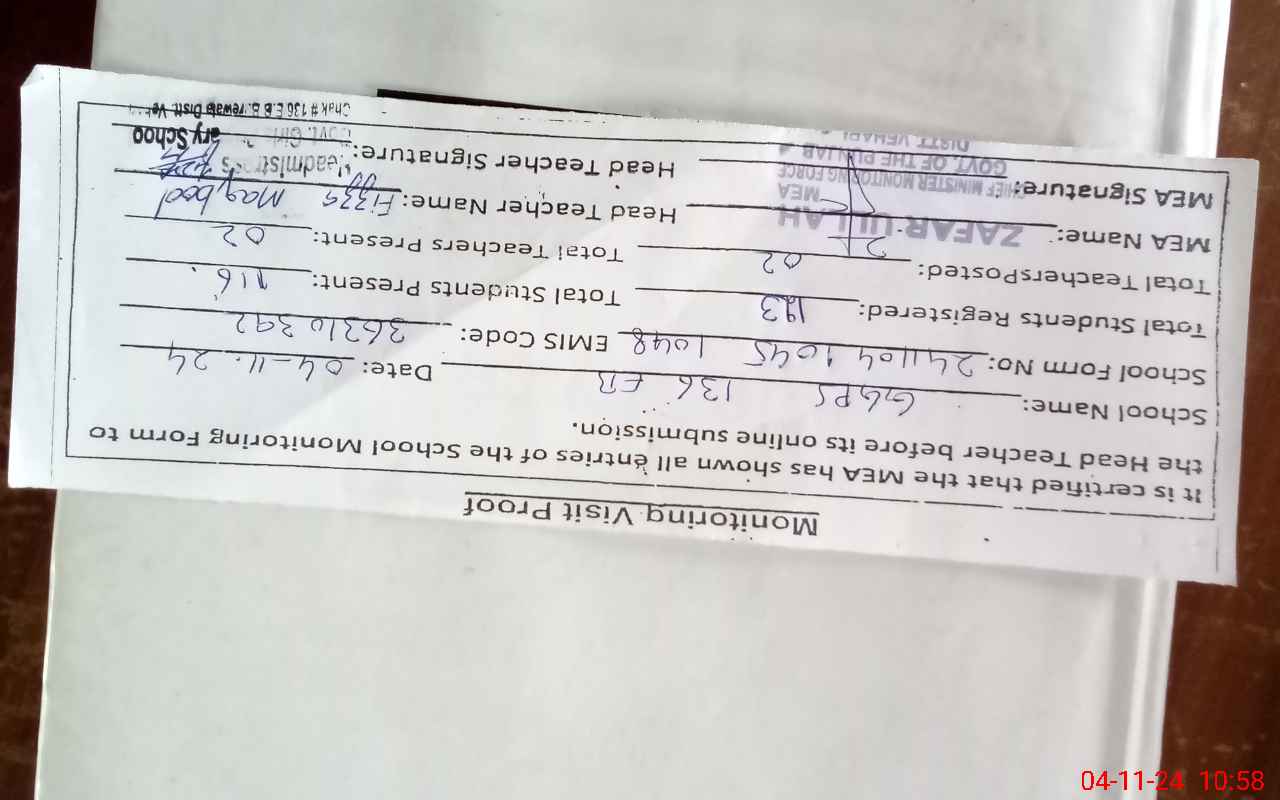 Monitoring Visit Proof
It is certified that the MEA has shown all entries of the School Monitoring Form to
the Head Teacher before its online submission.
School Name: GGPS 136 EB Date: 04-11-24
School Form No: 241104 1045 1048 EMIS Code: 36310392
Total Students Registered: 123 Total Students Present: 116
Total TeachersPosted: 02 Total Teachers Present: 02
MEA Name: ZAFAR ULLAH Head Teacher Name: Fizza Maqbool
MEA
MEA Signature: CHIEF MINISTER MONITORING FORCE Head Teacher Signature:
GOVT. OF THE PUNJAB
DISTT. VEHARI
Govt. Girls ary Schoo
Chak # 136 E.B. B
04-11-24 10:58